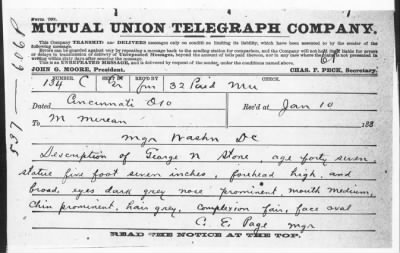 MUTUAL UNION TELEGRAPH COMPANY.
This Company TRANSMITS and DELIVERS messages only on conditions limiting its liability, which have been assented to by the sender of the following message.
Errors can be guarded against only by repeating a message back to the sending station for comparison, and the Company will not hold itself liable for errors
or delays in transmission or delivery of Unrepeated Messages,
This is an UNREPEATED MESSAGE, and is delivered by request of the sender, under the conditions named above.
JOHN G. MOORE, President. CHAS. F. PECK, Secretary.
NUMBER CHECK
134 C 32 Paid
Dated Cincinnati O 10 Rec'd at Jan 10 188
To M
Mgr Washn DC
Description of George N Stone, age forty seven
statue five foot seven inches, forehead high and
broad, eyes dark grey nose prominent mouth medium,
Chin prominent, hair grey, Complexion fair, face oval
C. E. Page mgr
READ THE NOTICE AT THE TOP.